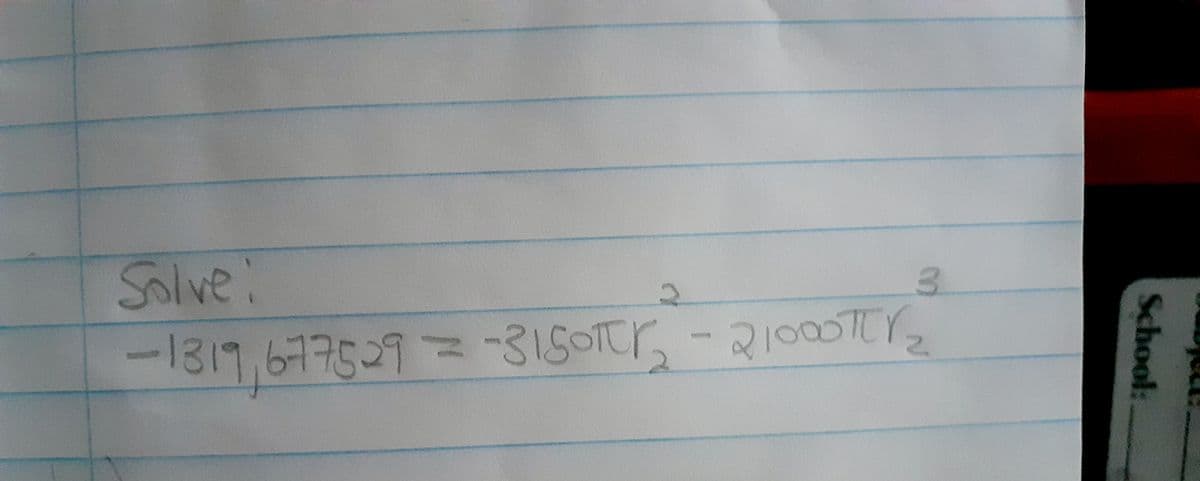 Solve:
-1319,677529 = -3150πr₂² - 21000πr₂³
School: